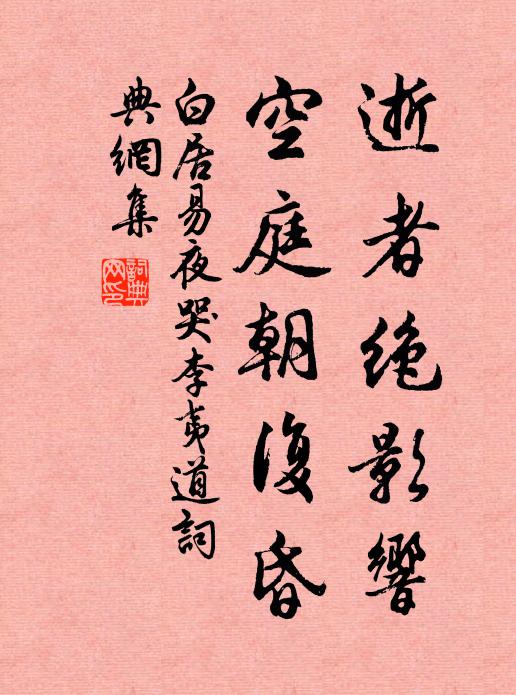 逝者絶影響
空庭朝復昏
白居易夜哭李夷道詞
典網集
詞典網印